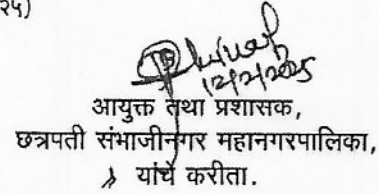 २५)
12/2/2025
आयुक्त तथा प्रशासक,
छत्रपती संभाजीनगर महानगरपालिका,
यांचे करीता.